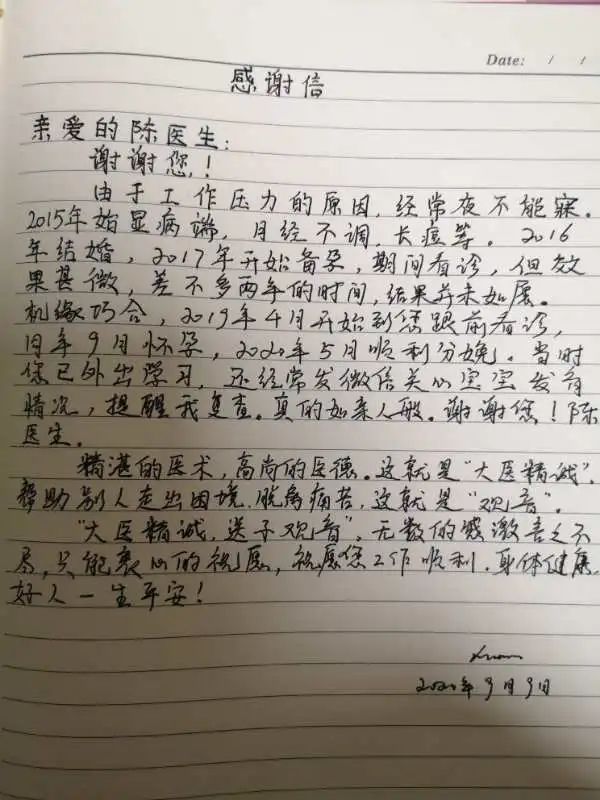 Date: / /
感谢信
亲爱的陈医生:
谢谢您!
由于工作压力的原因,经常夜不能寐。
2015年始显病端,月经不调,长痘等。2016
年结婚,2017年开始备孕,期间看诊,但效
果甚微,差不多两年的时间,结果并未如愿。
机缘巧合,2019年4月开始到您跟前看诊,
同年9月怀孕,2020年5月顺利分娩。当时
您已外出学习,还经常发微信关心宝宝发育
情况,提醒我复查。真的如亲人般。谢谢您!陈
医生。
精湛的医术,高尚的医德。这就是“大医精诚”.
帮助别人走出困境,脱离痛苦,这就是“观音”。
“大医精诚,送子观音”,无数的感激言之不
尽,只能衷心的祝愿,祝愿您工作顺利.身体健康,
好人一生平安!
2020年9月9日